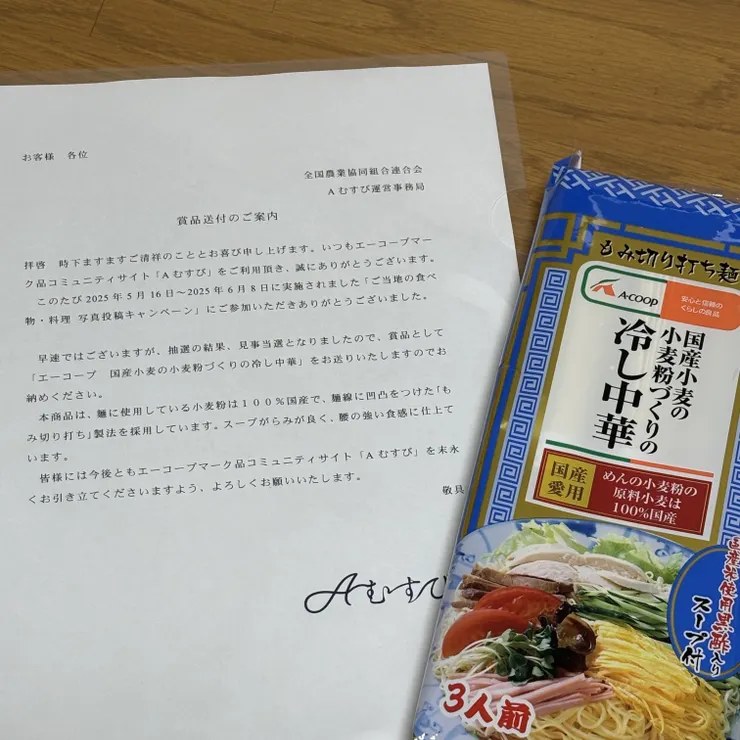 お客様　各位
全国農業協同組合連合会
Aむすび運営事務局
賞品送付のご案内
拝啓　時下ますますご清祥のこととお喜び申し上げます。いつもエーコープマー
ク品コミュニティサイト「Aむすび」をご利用頂き、誠にありがとうございます。
このたび2025年5月16日～2025年6月8日に実施されました「ご当地の食べ
物・料理 写真投稿キャンペーン」にご参加いただきありがとうございました。
早速ではございますが、抽選の結果、見事当選となりましたので、賞品として
「エーコープ　国産小麦の小麦粉づくりの冷し中華」をお送りいたしますのでお
納めください。
本商品は、麺に使用している小麦粉は１００％国産で、麺線に凹凸をつけた「も
み切り打ち」製法を採用しています。スープがらみが良く、腰の強い食感に仕上て
います。
皆様には今後ともエーコープマーク品コミュニティサイト「Aむすび」を末永
くお引き立てくださいますよう、よろしくお願いいたします。
敬具
Aむすび
もみ切り打ち麺
A-COOP
安心と信頼の
くらしの良具
国産小麦の
小麦粉づくりの
冷し中華
国産
愛用
めんの小麦粉の
原料小麦は
100％国産
国産米使用黒酢入り
スープ付
3人前